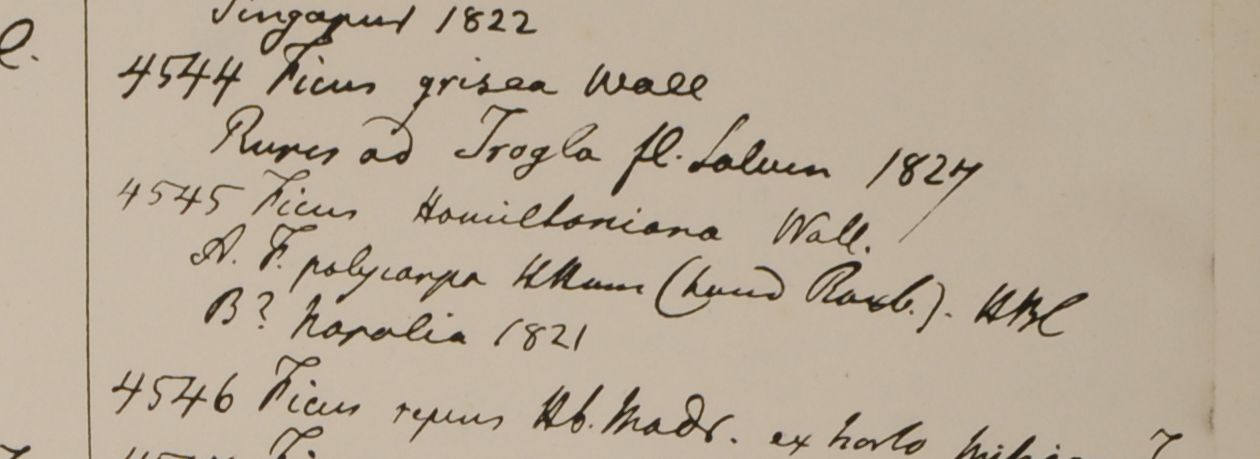 Singapur 1822
4544 Ficus grisea Wall
Rupes ad Trogla fl. Saluen 1827
4545 Ficus Hamiltoniana Wall.
A. F. polycarpa HHam (haud Roxb.). HBC
B? Napalia 1821
4546 Ficus repens Hb. Madr. ex horto